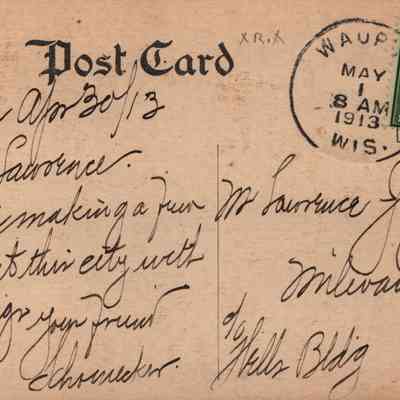 Post Card
x R. x
WAUP
MAY
1
8 AM
1913
WIS.
Apr 30/13
Lawrence.
making a few
this city with
your friend
Schoenecker.
Mr Lawrence J
Milwau
c/o
Wells Bldg